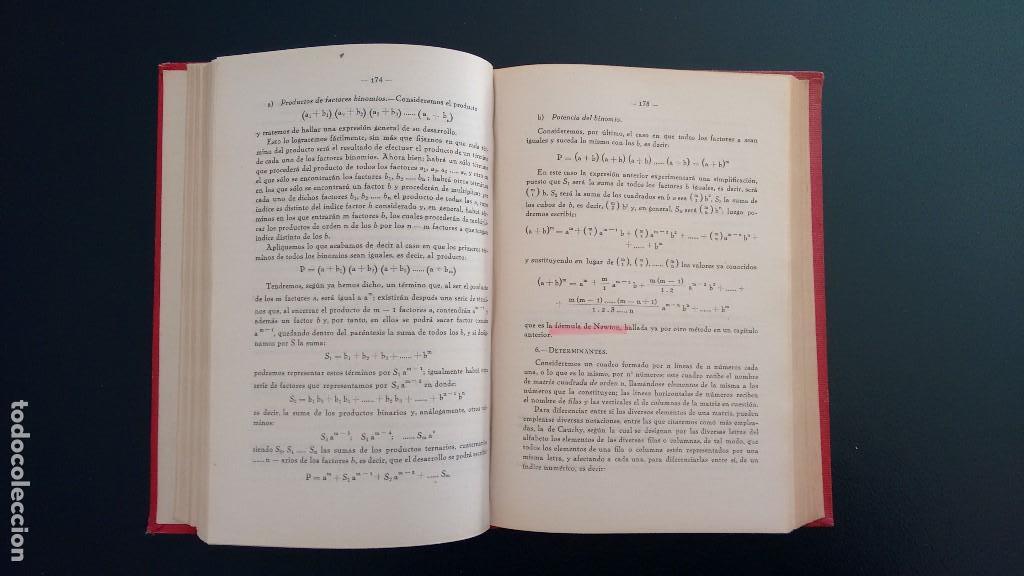 — 174 —
a) Productos de factores binomios.—Consideremos el producto
(a₁ + b₁) (a₂ + b₂) (a₃ + b₃) ..... (aₙ + bₙ)
y tratemos de hallar una expresión general de su desarrollo.
Esto lo lograremos fácilmente, sin más que fijarnos en que cada tér-
mino del producto será el resultado de efectuar el producto de un término
de cada uno de los factores binomios. Ahora bien; habrá un sólo término
que procederá del producto de todos los factores a₁, a₂, a₃ ..... aₙ y otro en
el que sólo se encontrarán los factores b₁, b₂, ..... bₙ; habrá otros términos
en los que sólo se encontrará un factor b y procederán de multiplicar por
cada uno de dichos factores b₁, b₂, ..... bₙ el producto de todas las a, cuyo
índice es distinto del índice factor b considerado y, en general, habrá tér-
minos en los que entrarán m factores b, los cuales procederán de multipli-
car los productos de orden n de los b por los n — m factores a que tengan
índice distinto de los b.
Apliquemos lo que acabamos de decir al caso en que los primeros tér-
minos de todos los binomios sean iguales, es decir, al producto:
P = (a + b₁) (a + b₂) (a + b₃) ..... (a + bₘ)
Tendremos, según ya hemos dicho, un término que, al ser el producto
de los m factores a, será igual a aᵐ; existirán después una serie de térmi-
nos que, al encerrar el producto de m — 1 factores a, contendrán aᵐ⁻¹ y
además un factor b y, por tanto, en ellos se podrá sacar factor común
aᵐ⁻¹, quedando dentro del paréntesis la suma de todos los b, y si desig-
namos por S la suma:
S₁ = b₁ + b₂ + b₃ + ..... + bᵐ
podremos representar estos términos por S₁ aᵐ⁻¹; igualmente habrá una
serie de factores que representamos por S₂ aᵐ⁻² en donde:
S₂ = b₁ b₂ + b₁ b₃ + ..... + b₂ b₃ + ..... + bᵐ⁻¹ bᵐ
es decir, la suma de los productos binarios y, análogamente, otros tér-
minos:
S₃ aᵐ⁻³; S₄ aᵐ⁻⁴; ..... Sₘ a⁰
siendo S₃, S₄ ..... Sₙ las sumas de los productos ternarios, cuaternarios
..... n — arios de los factores b, es decir, que el desarrollo se podrá escribir
P = aᵐ + S₁ aᵐ⁻¹ + S₂ aᵐ⁻² + ..... Sₘ
— 175 —
b) Potencia del binomio.
Consideremos, por último, el caso en que todos los factores a sean
iguales y suceda lo mismo con los b, es decir:
P = (a + b) (a + b) (a + b) ..... (a + b) = (a + b)ᵐ
En este caso la expresión anterior experimentará una simplificación,
puesto que S₁ será la suma de todos los factores b iguales, es decir, será
(ᵐ₁) b, S₂ será la suma de los cuadrados en b o sea (ᵐ₂) b², S₃ la suma de
los cubos de b, es decir, (ᵐ₃) b³ y, en general, Sₙ será (ᵐₙ) bⁿ, luego po-
dremos escribir:
(a + b)ᵐ = aᵐ + (ᵐ₁) aᵐ⁻¹ b + (ᵐ₂) aᵐ⁻² b² + ..... + (ᵐₙ) aᵐ⁻ⁿ bⁿ +
+ ..... + bᵐ
y sustituyendo en lugar de (ᵐ₁), (ᵐ₂), ..... (ᵐₙ) los valores ya conocidos
(a + b)ᵐ = aᵐ + m/1 aᵐ⁻¹ b + m (m — 1)/1 . 2 aᵐ⁻² b² + ..... +
+ m (m — 1) ..... (m — n + 1)/1 . 2 . 3 ..... n aᵐ⁻ⁿ bⁿ + ..... + bᵐ
que es la fórmula de Newton, hallada ya por otro método en un capítulo
anterior.
6.—DETERMINANTES.
Consideremos un cuadro formado por n líneas de n números cada
una, o lo que es lo mismo, por n² números; este cuadro recibe el nombre
de matriz cuadrada de orden n, llamándose elementos de la misma a los
números que la constituyen; las líneas horizontales de números reciben
el nombre de filas y las verticales el de columnas de la matriz en cuestión.
Para diferenciar entre sí los diversos elementos de una matriz, pueden
emplearse diversas notaciones, entre las que citaremos como más emplea-
das, la de Cauchy, según la cual se designan por las diversas letras del
alfabeto los elementos de las diversas filas o columnas, de tal modo, que
todos los elementos de una fila o columna están representados por una
misma letra, y afectando a cada una, para diferenciarlas entre sí, de un
índice numérico, es decir:
todocoleccion